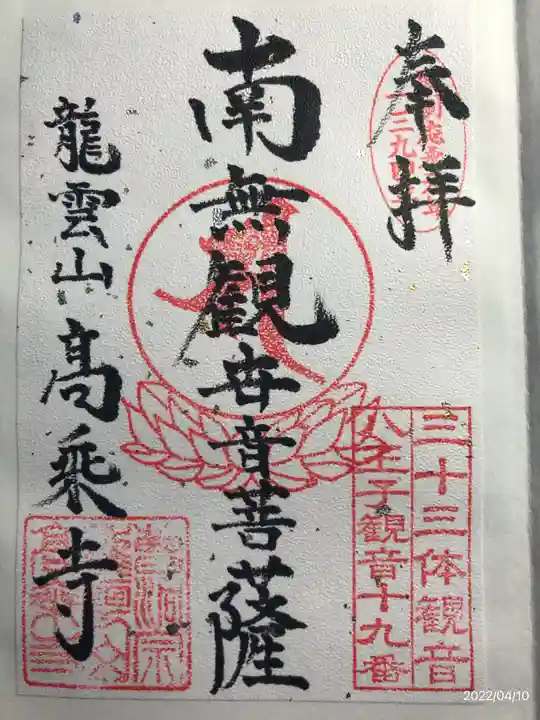 奉拝
三十三体観音
八王子観音十九番
南無観世音菩薩
龍雲山高乗寺
2022/04/10